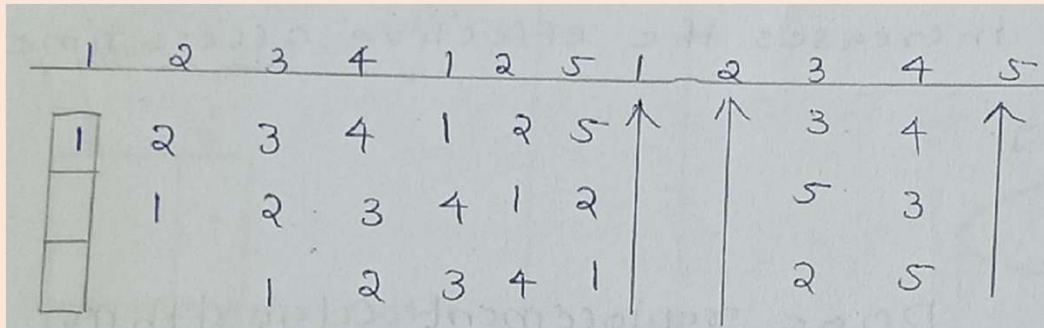 1 2 3 4 1 2 5 1 2 3 4 5
1 2 3 4 1 2 5 ↑ ↑ 3 4 ↑
1 2 3 4 1 2 5 3
1 2 3 4 1 2 5